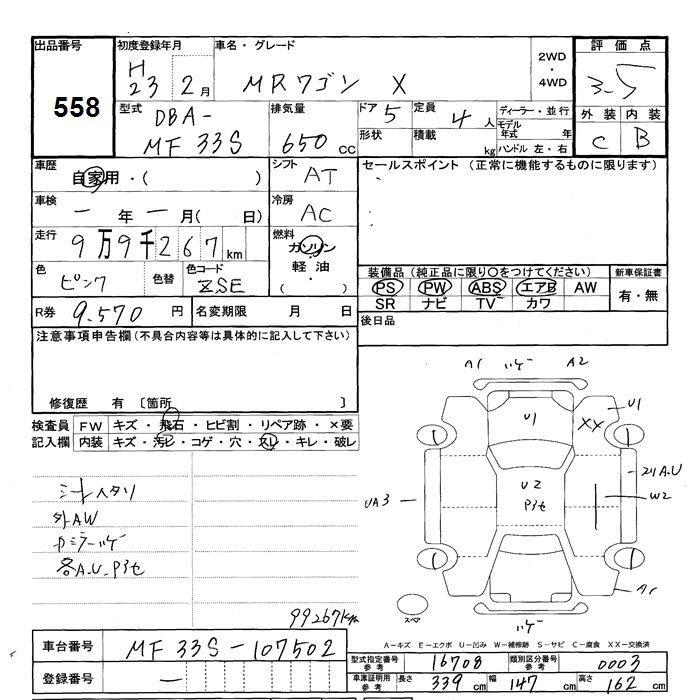 出品番号 初度登録年月 車名・グレード 2WD・4WD 評価点
558 H23 2月 MRワゴン X 3.5
型式 DBA-MF33S 排気量 650cc ドア 5 定員 4人 ディーラー・並行
外装 内装
形状 積載 kg モデル年式 年
ハンドル 左・右 C B
車歴 自家用・( ) シフト AT セールスポイント (正常に機能するものに限ります)
車検 一年一月( 日) 冷房 AC
走行 9万9千267km 燃料 ガソリン・軽油・( )
色 ピンク 色替 色コード ZSE 装備品 (純正品に限り○をつけてください) 新車保証書
PS PW ABS エアB AW 有・無
SR ナビ TV カワ
R券 9.570円 名変期限 月 日 後日品
注意事項申告欄(不具合内容等は具体的に記入して下さい)
修復歴 有 〔箇所 〕
検査員記入欄 FW キズ・飛石・ヒビ割・リペア跡・×要
内装 キズ・汚レ・コゲ・穴・スレ・キレ・破レ
A1 ハゲ A2
U1 XX U1
シートヘタリ
外AW
ドミラーハゲ
各A.U.Pヨセ
UA3 U2 Pヨセ W2
A1
スペア ハゲ
99267km
A-キズ E-エクボ U-凹み W-補修跡 S-サビ C-腐食 XX-交換済
車台番号 MF33S-107502
型式指定番号 参考 16708 類別区分番号 参考 0003
登録番号 一
車庫証明用 参考 長さ 339cm 幅 147cm 高さ 162cm